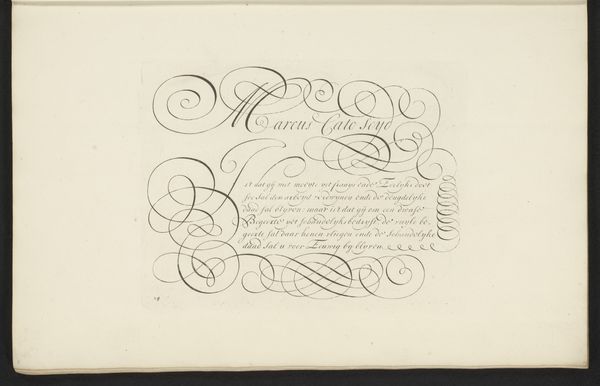 Marcus Cato Seyd
Ist dat gij met moeyte yet fraays ende Eerlyks doet
soo Sal den arbeyd verdwynen ende de deugdelyke
daad sal blyven: maar ist dat gij om een
Begeerte yet schandelyks bedryft, de vuyle be,
geerte Sal daar henen vliegen ende de Schandelyke
daad Sal u voor Eeuwig by blyven.